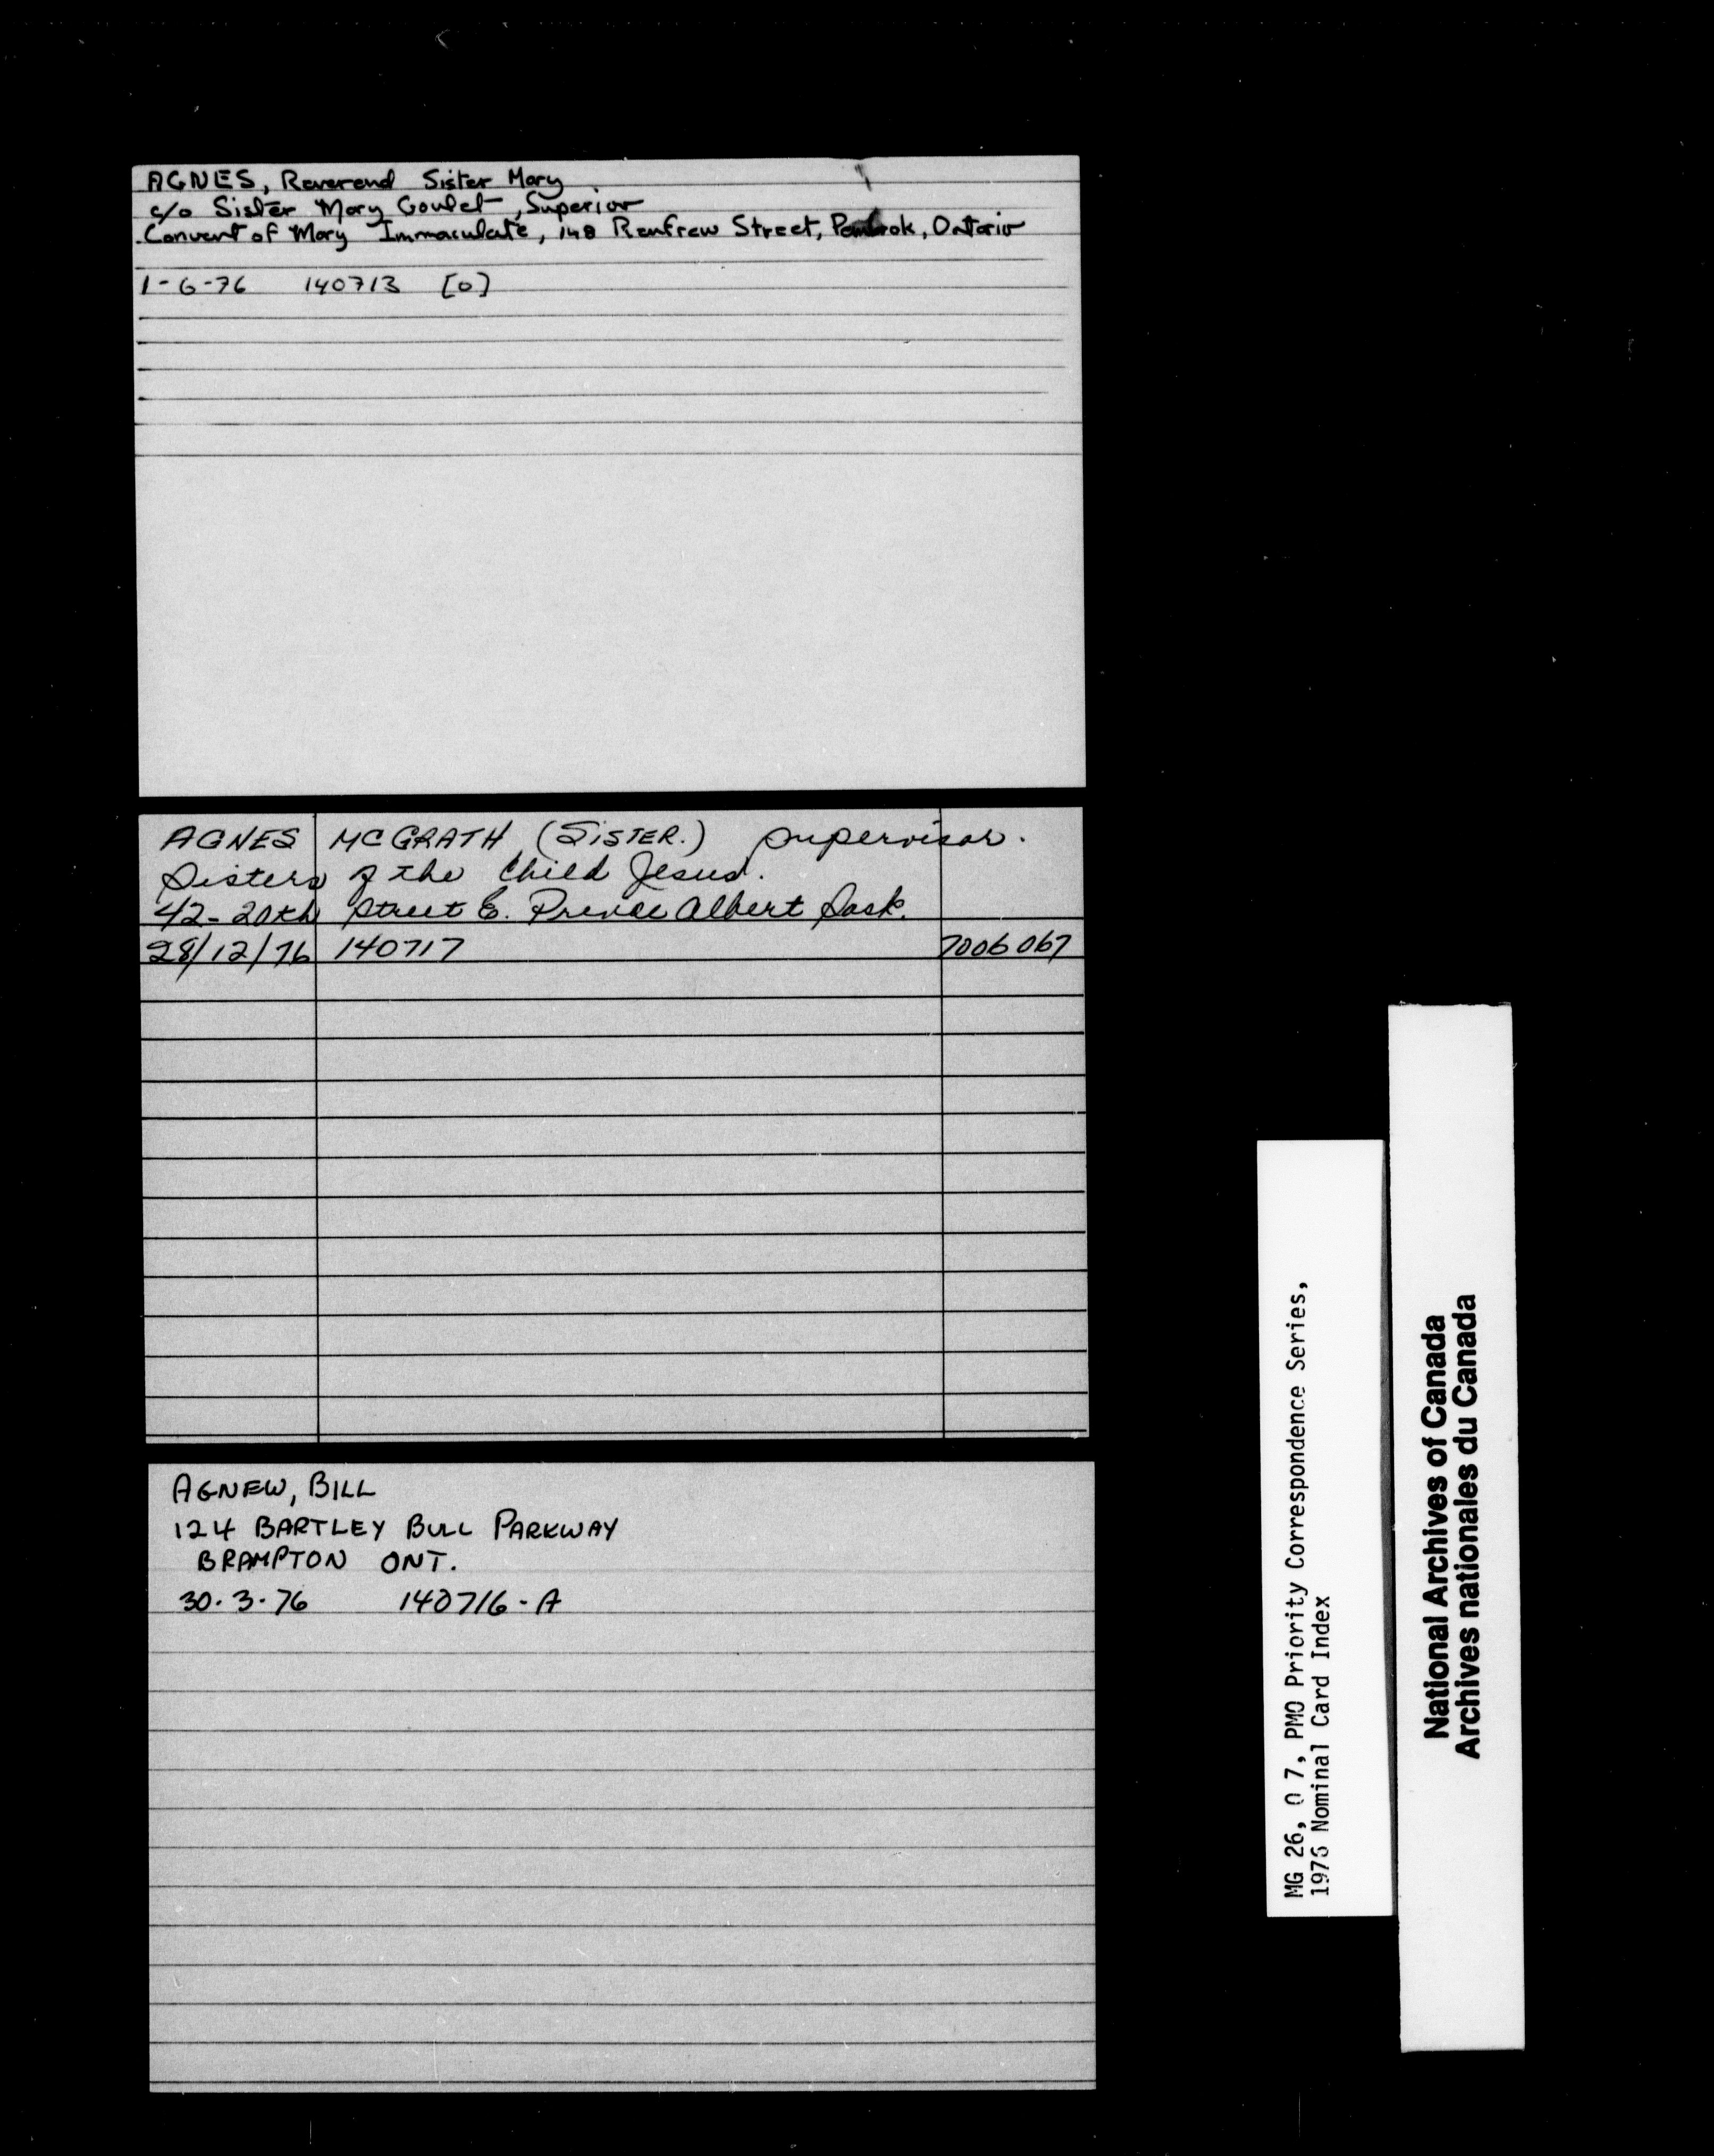 AGNES, Reverend Sister Mary
c/o Sister Mary Goulet, Superior
Convent of Mary Immaculate, 148 Renfrew Street, Pembrok, Ontario
1-6-76 140713 [0]
AGNES MCGRATH (SISTER.) supervisor.
Sisters of the Child Jesus.
42-20th Street E. Prince Albert Sask.
28/12/76 140717 7006067
AGNEW, BILL
124 BARTLEY BULL PARKWAY
BRAMPTON ONT.
30.3.76 140716-A
MG 26, O 7, PMO Priority Correspondence Series,
1976 Nominal Card Index
National Archives of Canada
Archives nationales du Canada